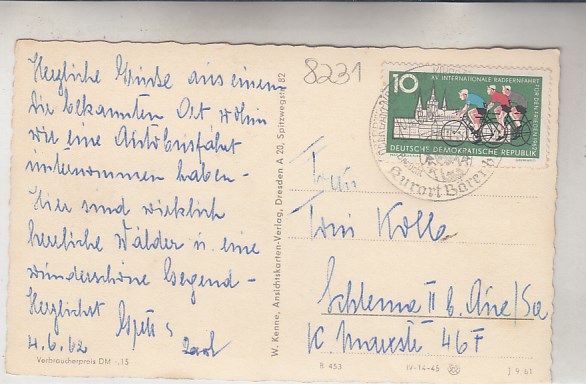 Herzliche Grüße aus einem
Dir bekannten Ort wohin
wir eine Autobusfahrt
unternommen haben -
Hier sind wirklich
herrliche Wälder u. eine
wunderschöne Gegend -
Herzlichst
4.6.62
Verbraucherpreis DM -.15
W. Kenne, Ansichtskarten-Verlag, Dresden A 20, Spitzwegstr. 82
8231
10
XV. INTERNATIONALE RADFERNFAHRT
FÜR DEN FRIEDEN 1962
DEUTSCHE DEMOKRATISCHE REPUBLIK
Kurort Bären
Frau
Kolbe
Schlema II b. Aue/Sa
K Marxstr 46F
B 453
IV-14-45
J 9 61